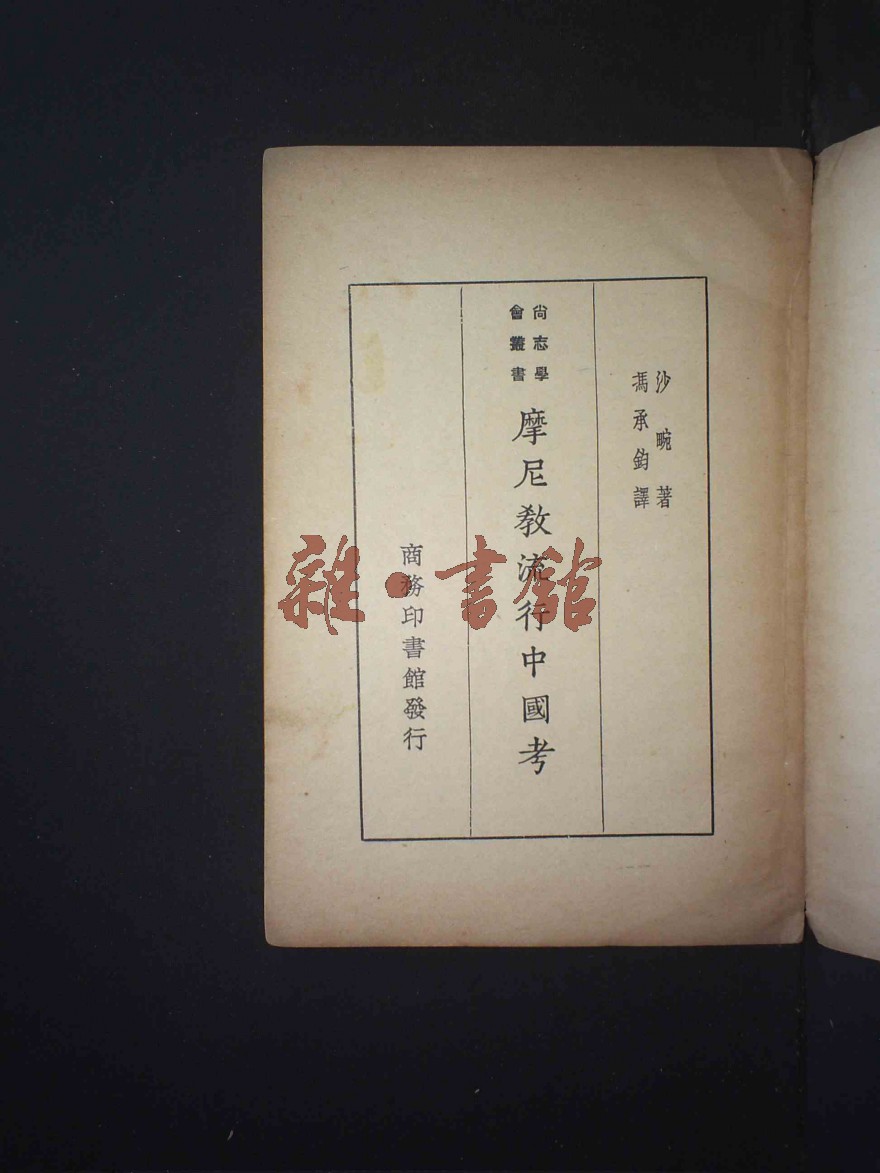 沙畹著
馮承鈞譯
尚志學
會叢書
摩尼教流行中國考
商務印書館發行
雜·書館